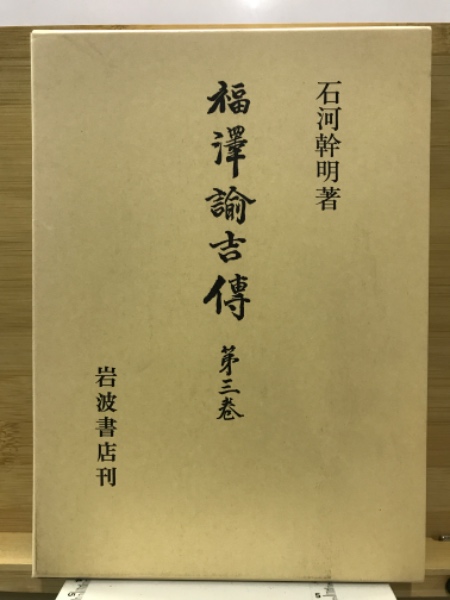 石河幹明著
福澤諭吉傳 第三巻
岩波書店刊